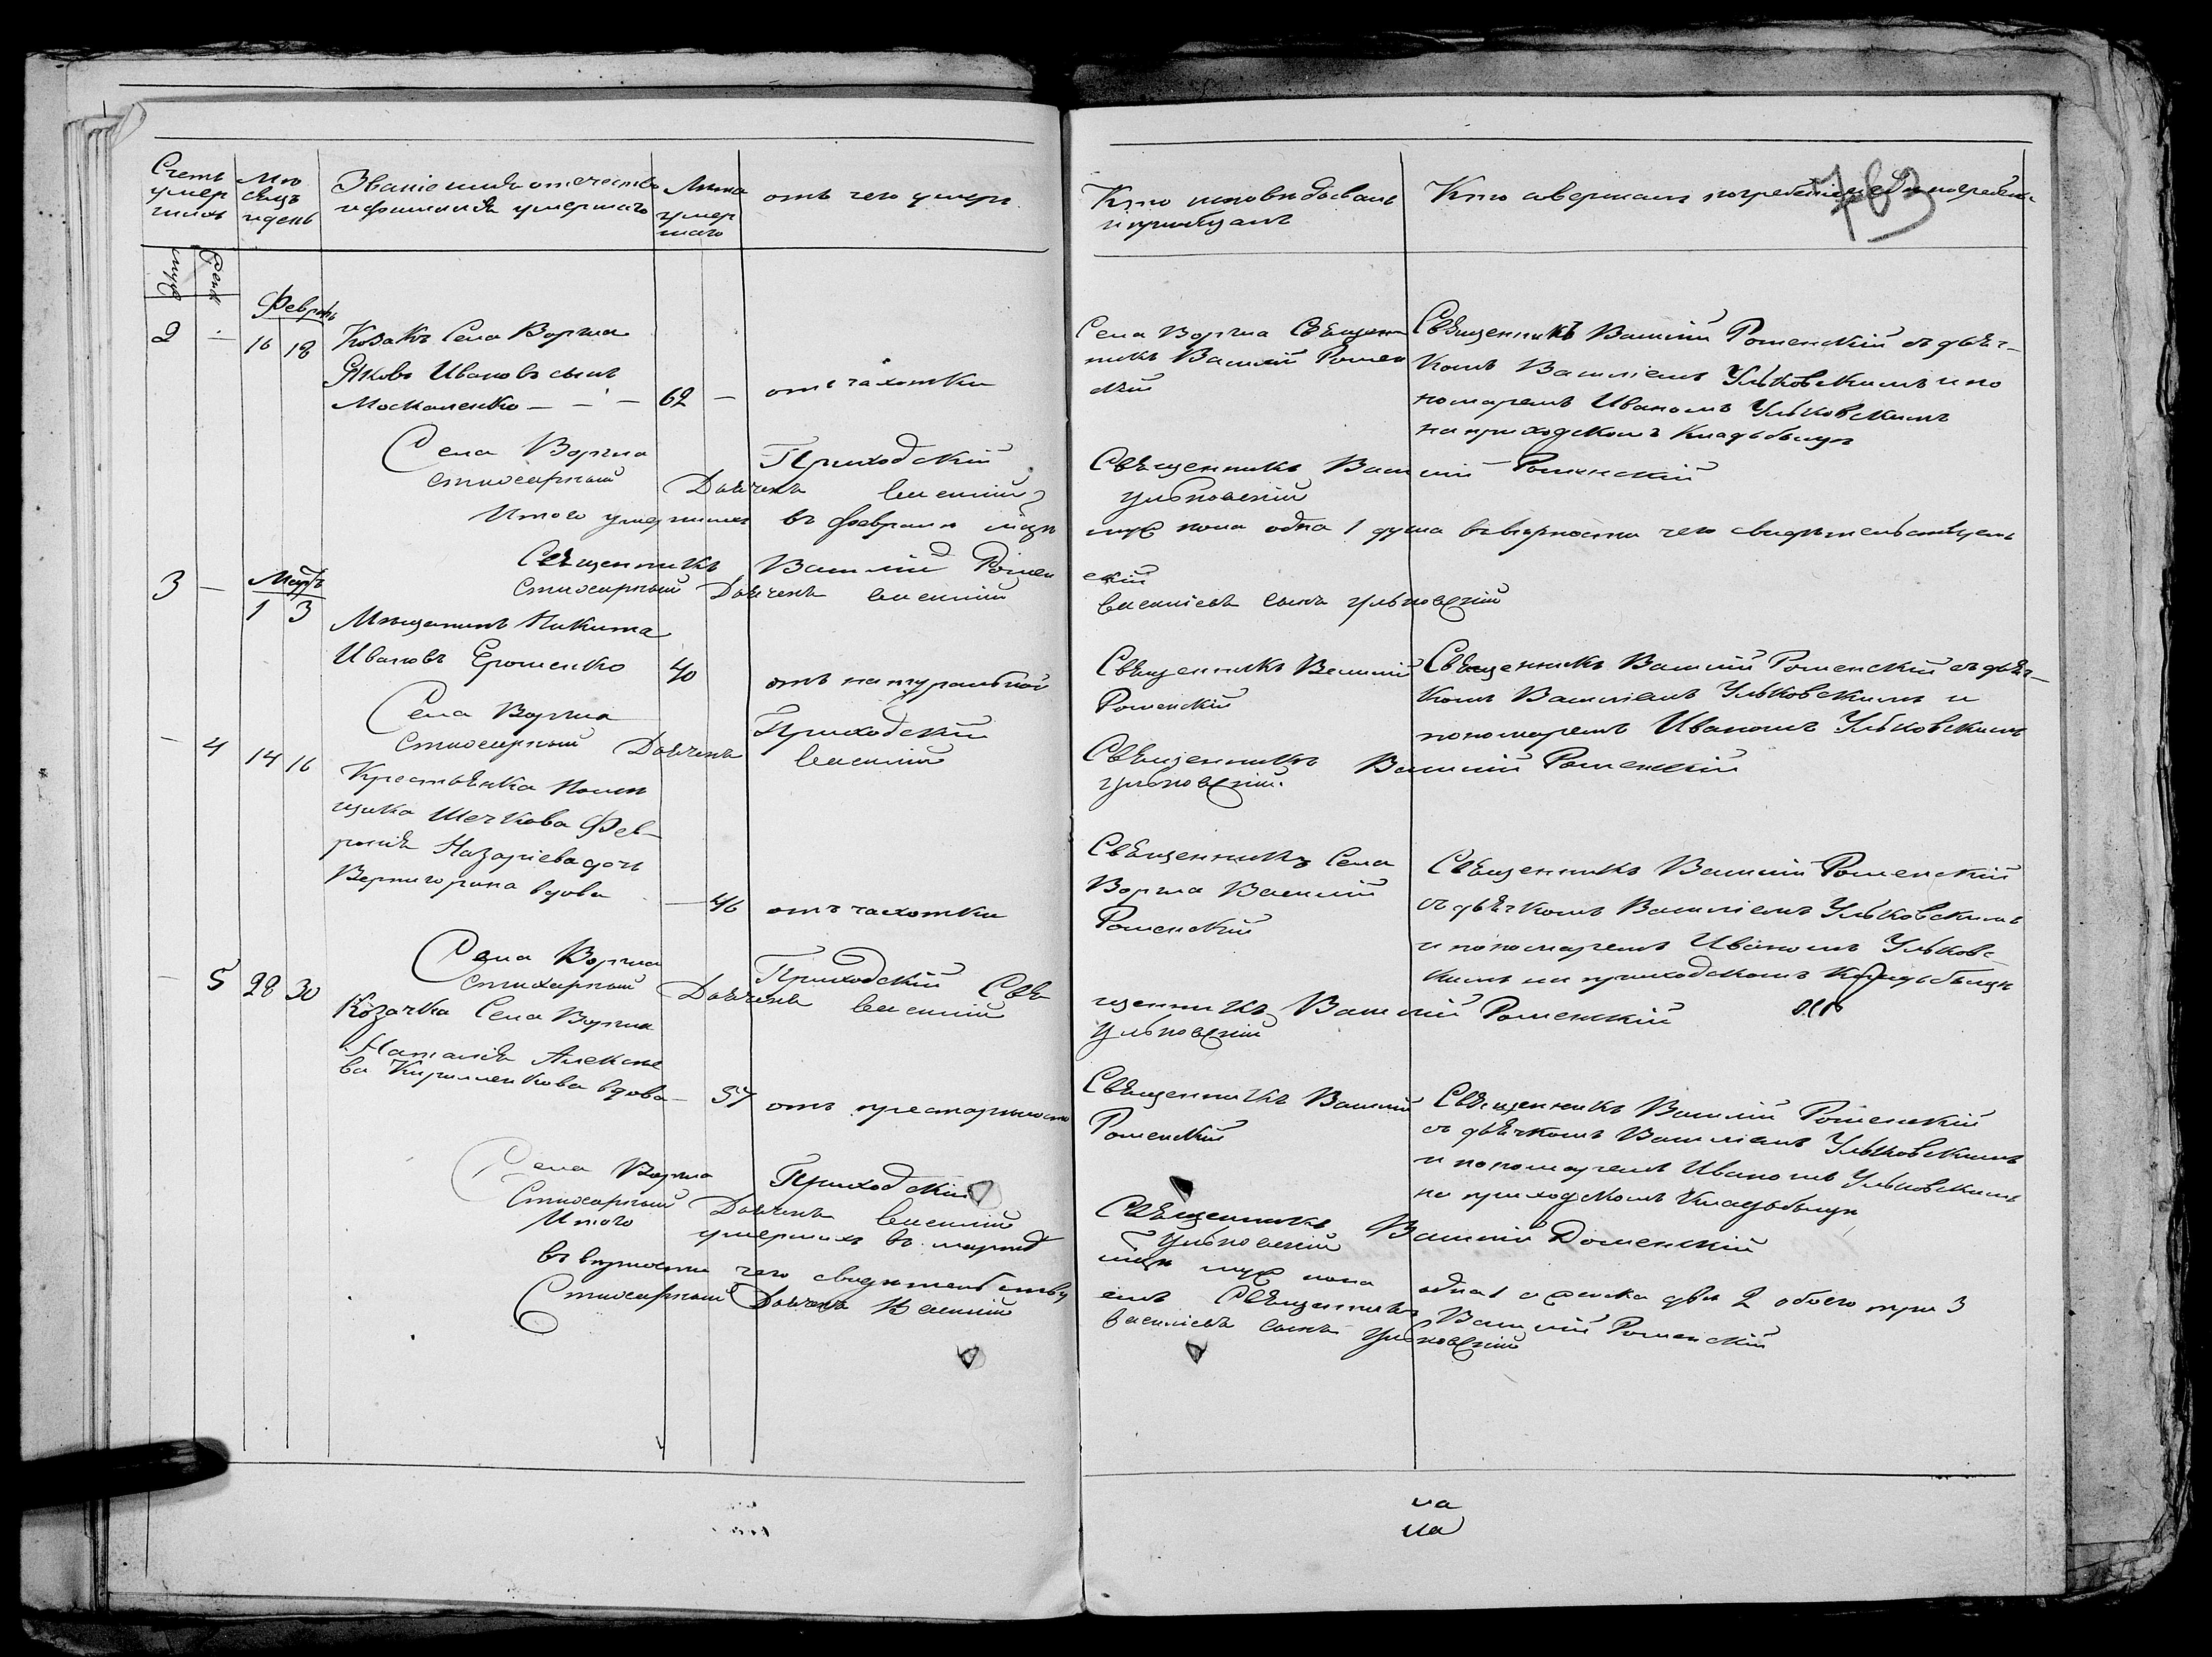 Счетъ умер шихъ
Мѣ сяцъ и день
Званіе имя отечество и фамилія умершаго
Лѣта умер шаго
отъ чего умеръ
Кто исповѣдывалъ и пріобщалъ
Кто совершалъ погребеніе и гдѣ погребены
763
муж
Жен
Февраль
2 — 16 18
Козакъ Села Воргла
Яковъ Ивановъ сынъ
Москаленко — — 62 —
отъ чахотки
Села Воргла Священ
никъ Василій Ромен
скій
Священникъ Василій Роменскій съ дьяч-
комъ Василіемъ Ульковскимъ и по
номаремъ Иваномъ Ульковскимъ
на приходскомъ кладьбищѣ
Села Воргла Приходскій Священникъ Василій Роменскій
Стихарный Дьячекъ Василій Ульковскій
Итого умершихъ въ февралѣ мцѣ муж пола одна 1 душа въ вѣрности чего свидѣтельствуемъ
Священникъ Василій Роменскій
Стихарный Дьячекъ Василій Василіевъ сынъ Ульковскій
Мартъ
3 — 1 3
Мѣщанинъ Никита
Ивановъ Ерошенко 40
отъ натуральной
Священникъ Василій
Роменскій
Священникъ Василій Роменскій съ дьяч-
комъ Василіемъ Ульковскимъ и
пономаремъ Иваномъ Ульковскимъ
Села Воргла Приходскій Священникъ Василій Роменскій
Стихарный Дьячекъ Василій Ульковскій.
— 4 14 16
Крестьянка Помѣ
щика Шечкова Фев-
ронія Назаріева дочь
Вернигорина вдова — 46
отъ чахотки
Священникъ Села
Воргла Василій
Роменскій
Священникъ Василій Роменскій
съ дьячкомъ Василіемъ Ульковскимъ
и пономаремъ Иваномъ Ульковс-
кимъ на приходскомъ Кладьбищѣ
Села Воргла Приходскій Священникъ Василій Роменскій
Стихарный Дьячекъ Василій Ульковскій
— 5 28 30
Козачка Села Воргла
Наталія Алексѣе
ва Кириленкова вдова — 57
отъ престарѣлости
Священникъ Василій
Роменскій
Священникъ Василій Роменскій
съ дьячкомъ Василіемъ Ульковскимъ
и пономаремъ Иваномъ Ульковскимъ
на приходскомъ Кладьбищѣ
Села Воргла Приходскій Священникъ Василій Роменскій
Стихарный Дьячекъ Василій Ульковскій
Итого умершихъ въ мартѣ мцѣ муж пола одна 1 а женска двѣ 2 обоего три 3
въ вѣрности чего свидѣтельствуемъ Священникъ Василій Роменскій
Стихарный Дьячекъ Василій Василіевъ сынъ Ульковскій